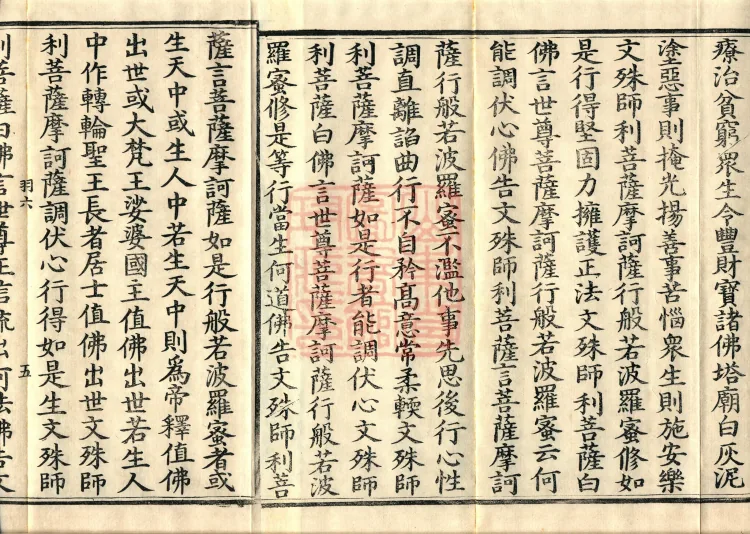 療治貧窮衆生令豐財寶諸佛塔廟白灰泥
塗惡事則掩光揚善事苦惱衆生則施安樂
文殊師利菩薩摩訶薩行般若波羅蜜修如
是行得堅固力擁護正法文殊師利菩薩白
佛言世尊菩薩摩訶薩行般若波羅蜜云何
能調伏心佛告文殊師利菩薩言菩薩摩訶
薩行般若波羅蜜不濫他事先思後行心性
調直離諂曲行不自矜髙意常柔輭文殊師
利菩薩摩訶薩如是行者能調伏心文殊師
利菩薩白佛言世尊菩薩摩訶薩行般若波
羅蜜修是等行當生何道佛告文殊師利菩
薩言菩薩摩訶薩如是行般若波羅蜜者或
生天中或生人中若生天中則爲帝釋值佛
出世或大梵王娑婆國主值佛出世若生人
中作轉輪聖王長者居士值佛出世文殊師
利菩薩摩訶薩調伏心行得如是生文殊師
羽六 五
利菩薩白佛言世尊正信流出何法佛告文